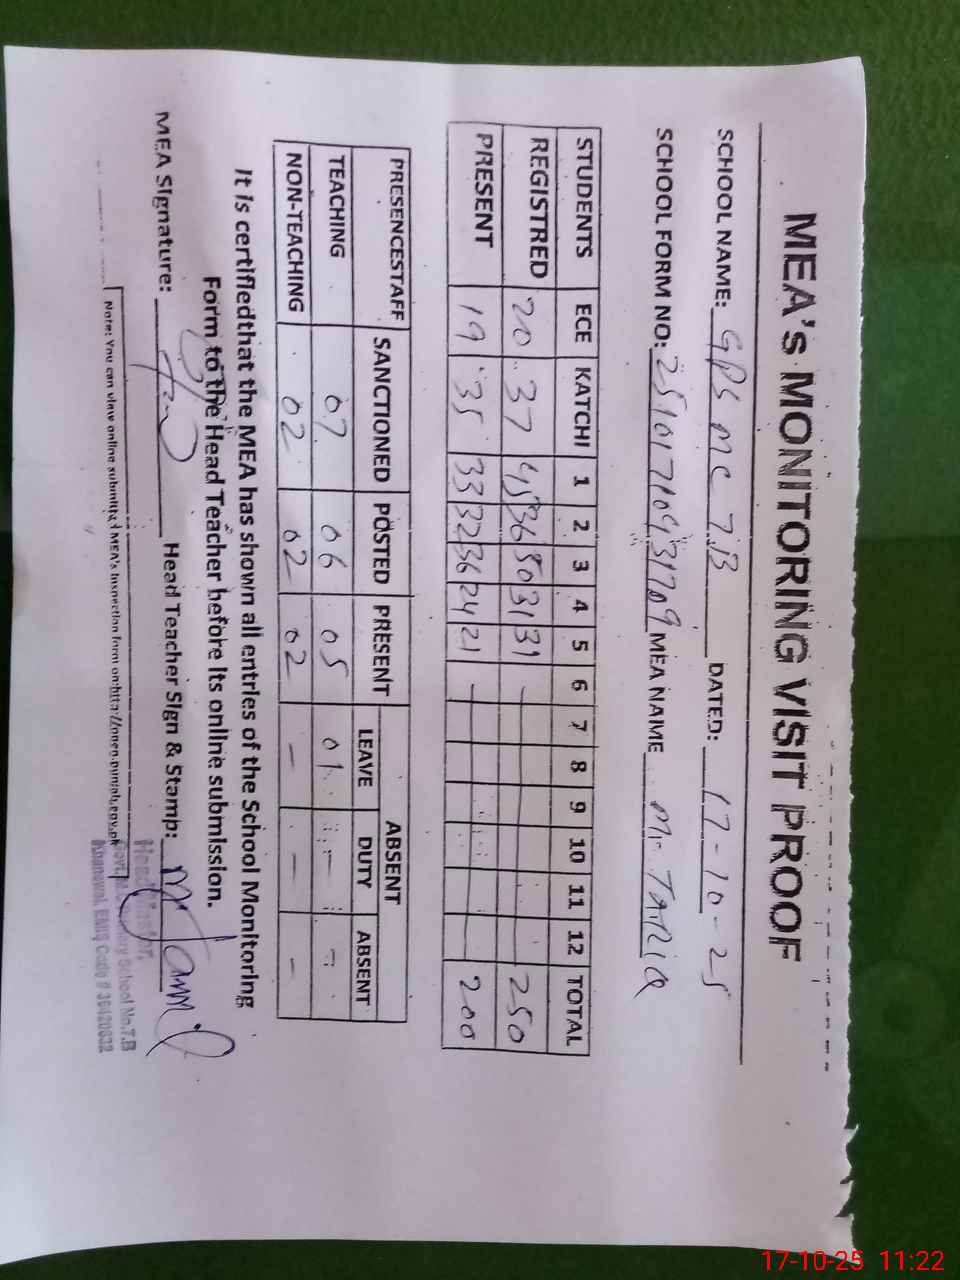 MEA's MONITORING VISIT PROOF
SCHOOL NAME: GPS MC 7.B DATED: 17-10-25
SCHOOL FORM NO: MEA NAME Mr TARIQ
STUDENTS ECE KATCHI 1 2 3 4 5 6 7 8 9 10 11 12 TOTAL
REGISTRED 20 37 45 36 50 31 31 - 250
PRESENT 19 35 33 32 36 24 21 - 200
PRESENCESTAFF SANCTIONED POSTED PRESENT ABSENT
LEAVE DUTY ABSENT
TEACHING 07 06 05 01 - -
NON-TEACHING 02 02 02 - - -
It is certifiedthat the MEA has shown all entries of the School Monitoring
Form to the Head Teacher before its online submission.
MEA Signature: Head Teacher Sign & Stamp:
Headmaster,
Govt. M.C. Primary School No.7.B
Khanewal, EMIS Code #
Note: You can view online submitted MEA's Inspection form on:
17-10-25 11:22